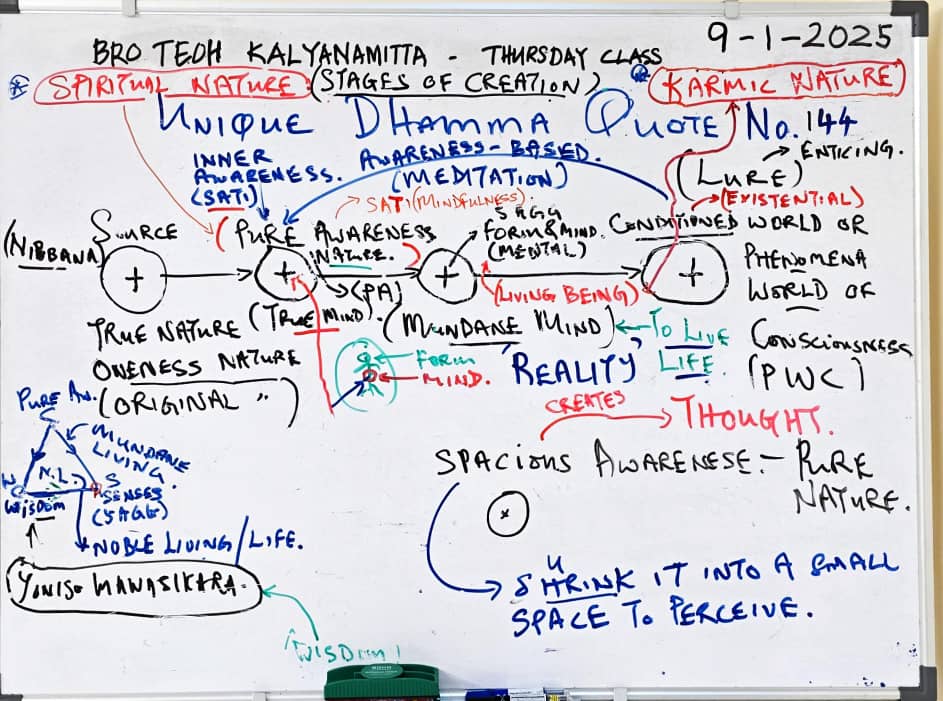 9-1-2025
BRO TEOH KALYANAMITTA - THURSDAY CLASS
SPIRITUAL NATURE (STAGES OF CREATION) KARMIC NATURE
UNIQUE DHAMMA QUOTE No. 144
INNER AWARENESS. (SATI)
AWARENESS-BASED.
(MEDITATION)
(LURE) → ENTICING.
(EXISTENTIAL)
SATI (MINDFULNESS).
(NIBBANA) SOURCE
(PURE AWARENESS
NATURE.)
(PA)
5 AGG
FORM & MIND.
(MENTAL)
CONDITIONED WORLD OR
PHENOMENA
WORLD OF
CONSCIOUSNESS
(PWC)
(LIVING BEING)
TRUE NATURE (TRUE MIND).
(MUNDANE MIND) ← TO LIVE
LIFE.
ONENESS NATURE
(ORIGINAL " )
FORM
MIND.
'REALITY'
CREATES
THOUGHT.
PURE AW.
MUNDANE
LIVING
N.L.
W
S
SENSES
WISDOM
NOBLE LIVING/LIFE.
YONISO MANASIKARA.
WISDOM
SPACIOUS AWARENESE:- PURE
NATURE.
SHRINK IT INTO A SMALL
U
SPACE TO PERCEIVE.